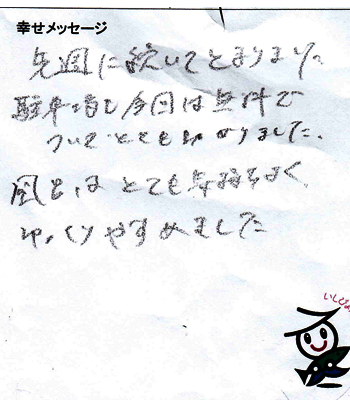 幸せメッセージ
先週に続いてとまりました
駐車場も今回は無料で
ついてとても助かりました。
風呂はとても気持ちよく、
ゆっくりやすめました